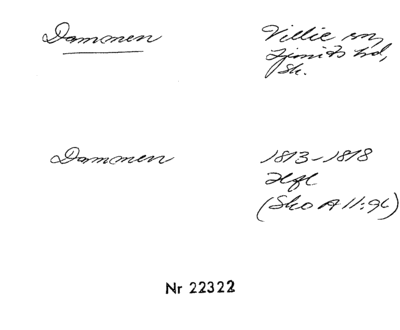 Dammen
Villie sn,
Ljunits hd,
Sk.
Dammen
1813-1818
Hfl
(Sko A II:9c)
Nr 22322